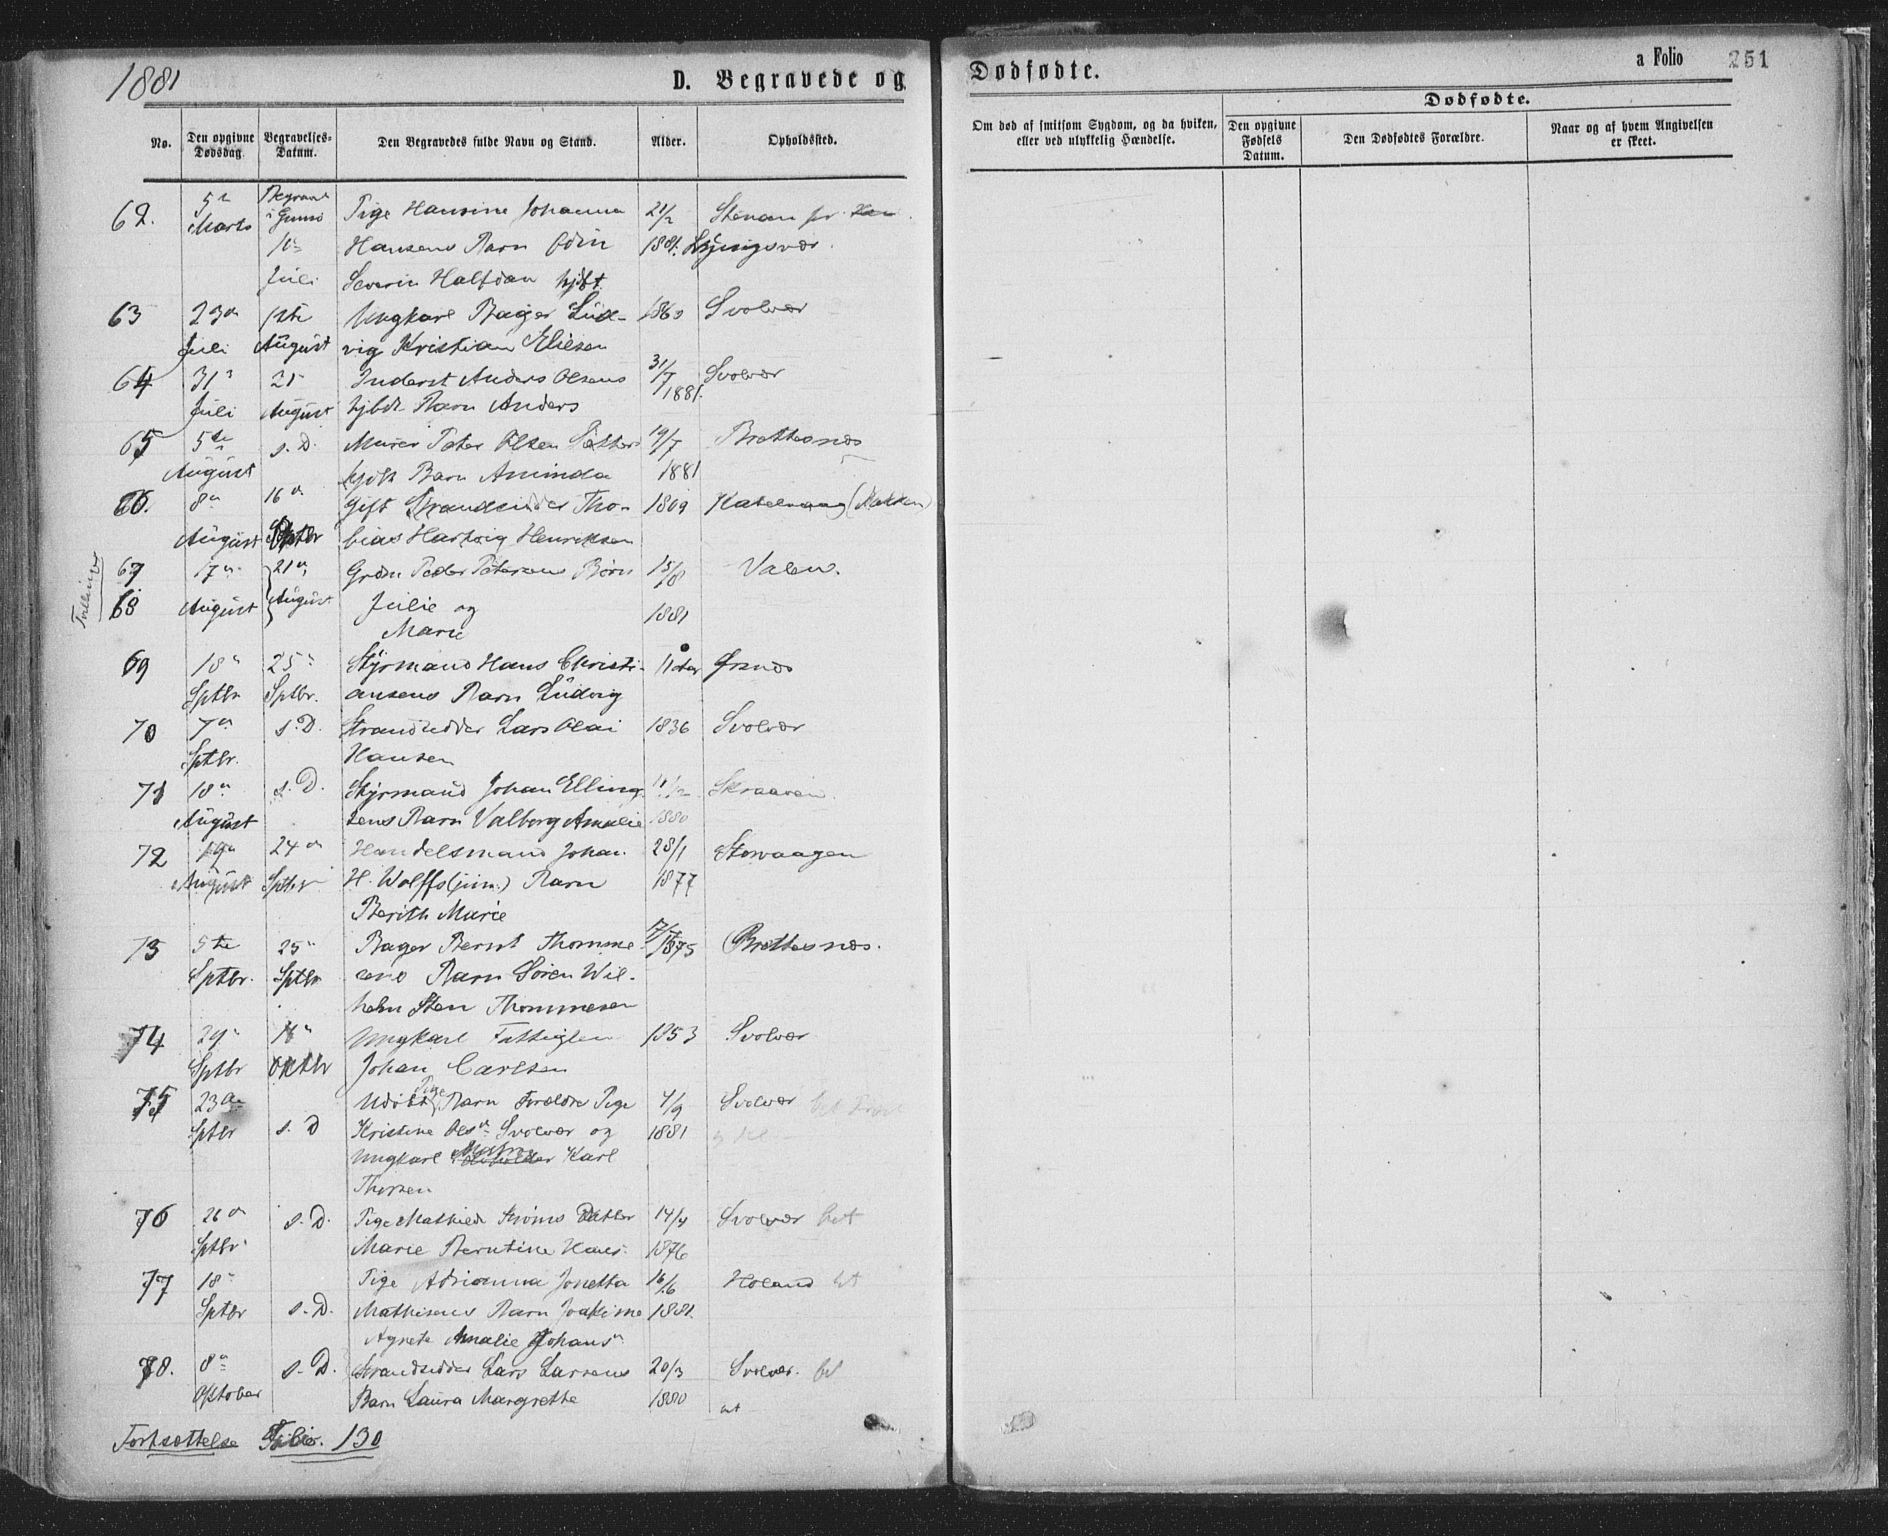 1881
D. Begravede og Dødfødte.
a Folio 251
No. Den opgivne Dødsdag. Begravelses-Datum. Den Begravedes fulde Navn og Stand. Alder. Opholdssted.
Om død af smitsom Sygdom, og da hvilken, eller ved ulykkelig Hændelse.
Dødfødte.
Den opgivne Fødsels Datum. Den Dødfødtes Forældre. Naar og af hvem Angivelsen er skeet.
62. 5te Begravet Tige Hansine Johanna 21/2 Stenan pr
Marts i Gimsø Hansens Barn Odin 1881.
Juli Severin Halfdan hjdt.
63 23de Ungkarl Bager Lud- 1860 Svolvær
Juli August vig Kristian Eliesen
64 31 21 Inderst Anders Olsens 31/7 Svolvær
Juli August hjbdt Barn Anders 1881.
65 5te s. D. Murer Peter Olsen 19/7 Brettesnæs
August Barn Aminda 1881
66. 8de 16de Gift Strandsidder Tho- 1809 Kabelvaag
August Sptbr bias Hartvig Henriksen
Tvillinger
67 17de 21de Grdm Peder Petersens Børn 15/8 Valen.
68 August August Julie og 1881
Marie
69 18de 25de Styrmand Hans Christi- 11 Aar Ørsnæs
Sptbr Sptbr. ansens Barn Ludvig
70 7de s. D. Strandsidder Lars Olai 1836 Svolvær
Sptbr. Hansen
71 18de s. D. Styrmand Johan Elling- 11/12 Skraaven
August sens Barn Valborg Amalie 1880
72 19de 24de Handelsmand Johan 28/1 Storvaagen
August Sptbr H. Wolffs (jun.) Barn 1877
Berith Marie
73 5te 25de Bager Bernt Thomme- 1875 Brettesnæs.
Sptbr. Sptbr sens Barn Søren Wil-
helm Sten Thommesen
74 29de Ungkarl Fattiglem 1853 Svolvær
Sptbr Oktbr Johan Carlsen
75 23de Udøbt Tige Barn Forældre Pige 4/9 Svolvær
Sptbr s. D Kristine Olsdr Svolvær og 1881
Ungkarl Karl
Thorsen
76 26de s. D. Pige Mathilde Strøms Datter 14/4 Svolvær bet
Sptbr. Marie Berntine Hans. 1876
77 18de Pige Adrianna Jonetta 16/6 Holand bet
Sptbr s. D. Mathisens Barn Joakime 1881.
Agnete Amalie Johansn
78. 8de s. D. Strandsidder Lars Larsens 20/3 Svolvær. bet
Oktober Barn Laura Margrethe 1880
Fortsættelse Folio. 130